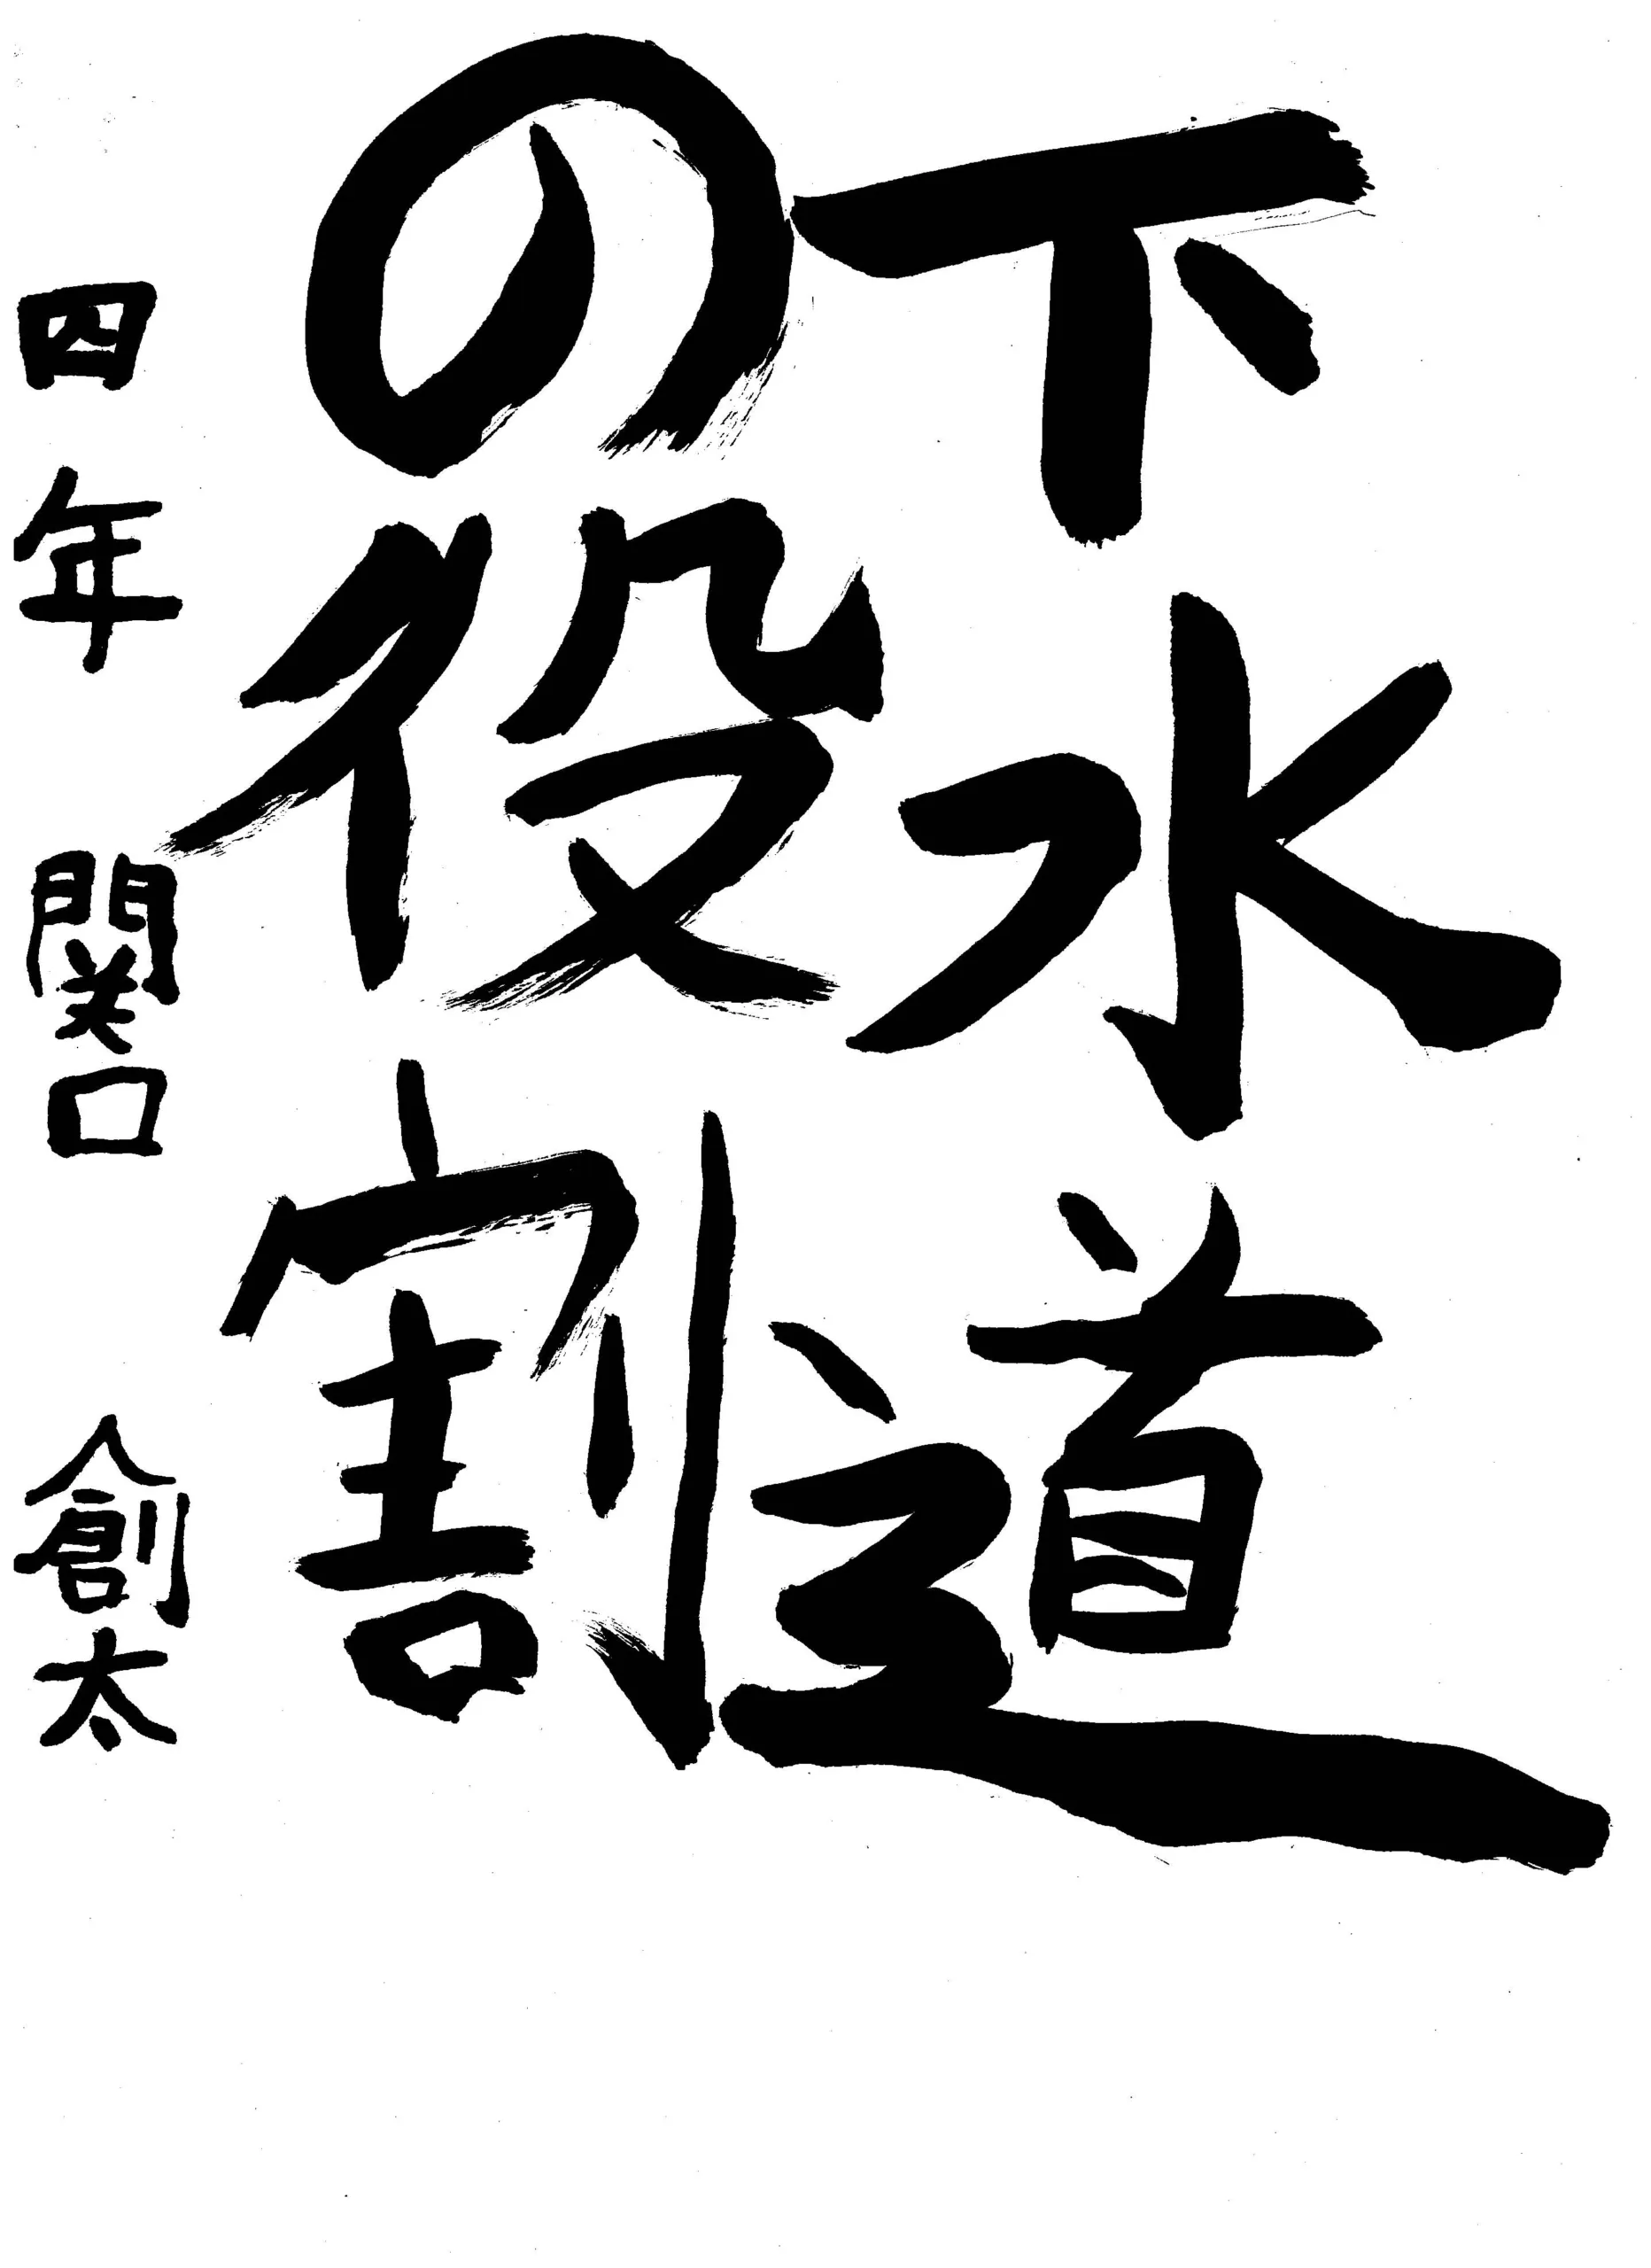 下水道
の役割
四年 関口 創太